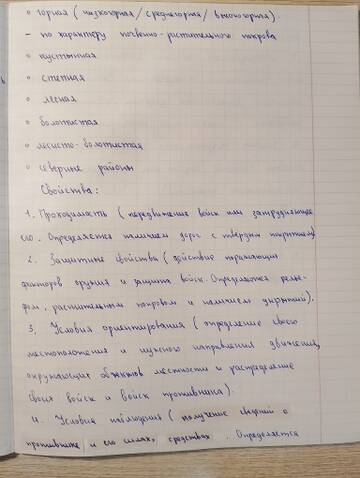 ◦ горная (низкогорная/среднегорная/высокогорная).
- по характеру почвенно-растительного покрова
◦ пустынная
◦ степная
◦ лесная
◦ болотистая
◦ лесисто-болотистая
◦ северные районы
Свойства:
1. Проходимость (передвижения войск или затрудняющее
его. Определяется наличием дорог с твёрдым покрытием)
2. Защитные свойства (действие поражающих
факторов оружия и защита войск. Определяется релье-
фом, растительным покровом и наличием укрытий).
3. Условия ориентирования (определение своего
местоположения и нужного направления движения,
окружающих объектов местности и распределение
своих войск и войск противника).
4. Условия наблюдения (получение сведений о
противнике и его силах, средствах. Определяется